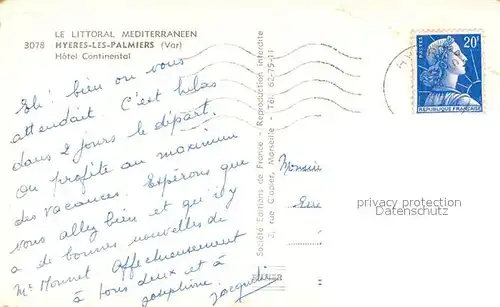 LE LITTORAL MEDITERRANEEN
3078 HYERES-LES-PALMIERS (Var)
Hôtel Continental
Eh! bien on vous
attendait. C'est hélas
dans 2 jours le départ.
On profite au maximum
des vacances. Espérons que
vous allez bien et qu'il y
a de bonnes nouvelles de
Mr Monnet Affectueusement
à tous deux et à
Joséphine.
Jacqueline
Société Editions de France - Reproduction interdite
7, rue Clapier, Marseille - Tél. 62-75-11
POSTES
20F
REPUBLIQUE FRANÇAISE
Monsieur
privacy protection
Datenschutz